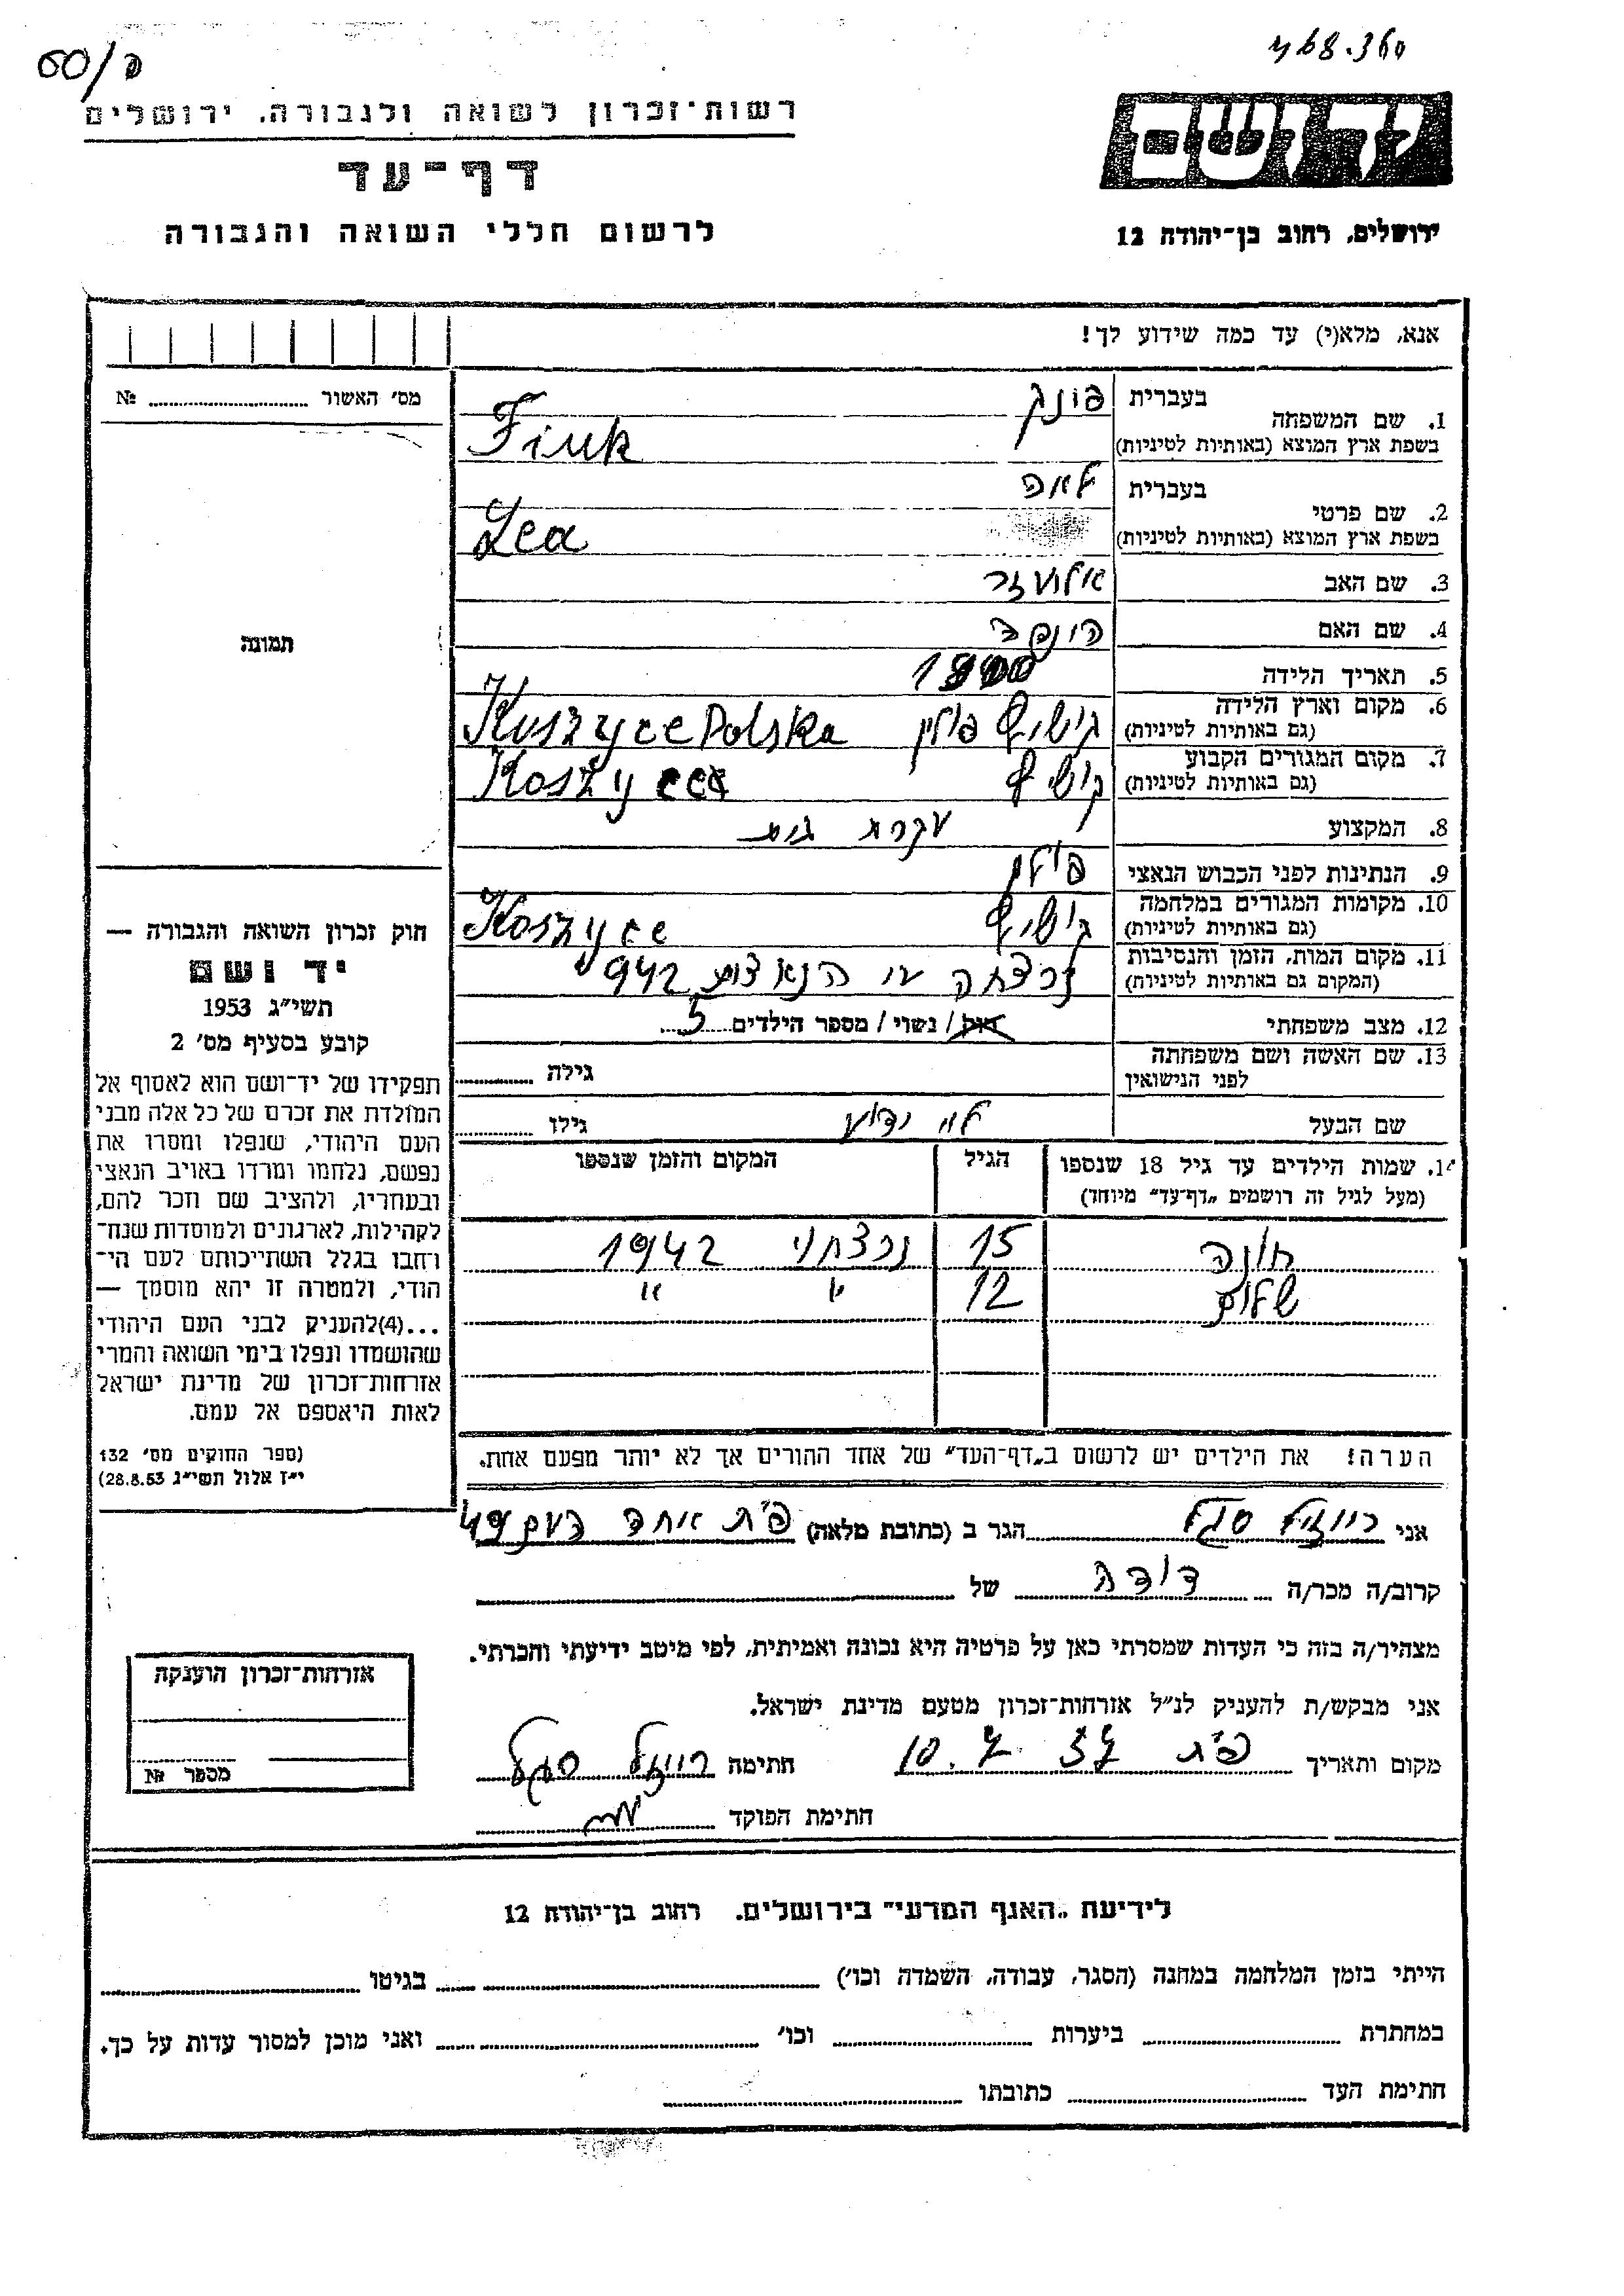 468.360
פ/60
יד ושם
רשות-זכרון לשואה ולגבורה, ירושלים
דף-עד
לרשום חללי השואה והגבורה
ירושלים, רחוב בן-יהודה 12
אנא, מלא(י) עד כמה שידוע לך!
מס׳ האשור № 
1. שם המשפחה
בעברית
פינק
בשפת ארץ המוצא (באותיות לטיניות)
Fink
2. שם פרטי
בעברית
לאה
בשפת ארץ המוצא (באותיות לטיניות)
Lea
3. שם האב
אלעזר
4. שם האם
5. תאריך הלידה
1900
6. מקום וארץ הלידה
(גם באותיות לטיניות)
פולין Koszyce Polska
7. מקום המגורים הקבוע
(גם באותיות לטיניות)
Koszyce
8. המקצוע
עקרת בית
9. הנתינות לפני הכבוש הנאצי
פולין
10. מקומות המגורים במלחמה
(גם באותיות לטיניות)
Koszyce
11. מקום המות, הזמן והנסיבות
(המקום גם באותיות לטיניות)
נרצחה ע״י הנאצים 942
12. מצב משפחתי
רווק / נשוי / מספר הילדים 5
13. שם האשה ושם משפחתה
לפני הנישואין
גילה
שם הבעל
לא ידוע
גילו
תמונה
חוק זכרון השואה והגבורה —
יד ושם
תשי״ג 1953
קובע בסעיף מס׳ 2
תפקידו של יד-ושם הוא לאסוף אל
המולדת את זכרם של כל אלה מבני
העם היהודי, שנפלו ומסרו את
נפשם, נלחמו ומרדו באויב הנאצי
ובעוזריו, ולהציב שם וזכר להם,
לקהילות, לארגונים ולמוסדות שנח-
רחבו בגלל השתייכותם לעם הי-
הודי, ולמטרה זו יהא מוסמך —
...(4)להעניק לבני העם היהודי
שהושמדו ונפלו בימי השואה והמרי
אזרחות-זכרון של מדינת ישראל
לאות היאספם אל עמם.
(ספר החוקים מס׳ 132
י״ז אלול תשי״ג 28.8.53)
14. שמות הילדים עד גיל 18 שנספו
(מעל לגיל זה רושמים „דף-עד״ מיוחד)
הגיל
המקום והזמן שנספו
חנה 15 נרצחו 1942
שלום 12 " "
הערה! את הילדים יש לרשום ב„דף-העד״ של אחד ההורים אך לא יותר מפעם אחת.
אני רייזל סגל הגר ב (כתובת מלאה) פ״ת אחד העם 49
קרוב/ה מכר/ה דודה של
מצהיר/ה בזה כי העדות שמסרתי כאן על פרטיה היא נכונה ואמיתית, לפי מיטב ידיעתי והכרתי.
אני מבקש/ת להעניק לנ״ל אזרחות-זכרון מטעם מדינת ישראל.
מקום ותאריך פ״ת 10.7.57 חתימה רייזל סגל
חתימת הפוקד
אזרחות-זכרון הוענקה
מספר №
לידיעת „האגף המדעי״ בירושלים, רחוב בן-יהודה 12
הייתי בזמן המלחמה במחנה (הסגר, עבודה, השמדה וכו׳) בגיטו
במחתרת ביערות וכו׳ ואני מוכן למסור עדות על כך.
חתימת העד כתובתו